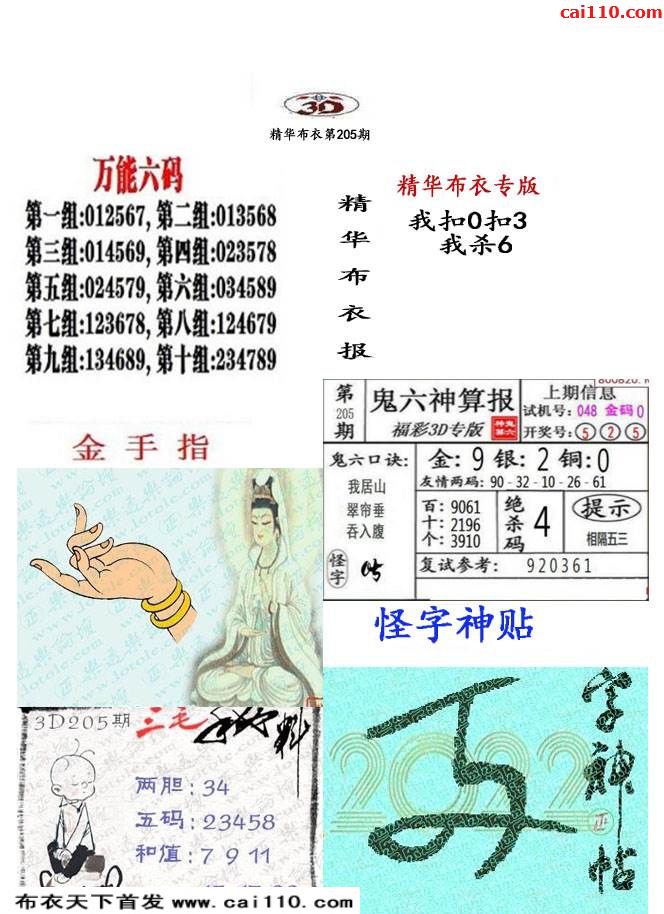 cai110.com
3D
精华布衣第205期
万能六码
第一组:012567, 第二组:013568
第三组:014569, 第四组:023578
第五组:024579, 第六组:034589
第七组:123678, 第八组:124679
第九组:134689, 第十组:234789
金手指
精华布衣报
精华布衣专版
我扣0扣3
我杀6
第205期
鬼六神算报
福彩3D专版
上期信息
试机号: 048 金码0
开奖号: 5 2 5
鬼六口诀:
我居山
翠帘垂
吞入腹
怪字
金: 9 银: 2 铜: 0
友情两码: 90-32-10-26-61
百: 9061
十: 2196
个: 3910
绝杀码 4
提示
相隔五三
复试参考: 920361
怪字神贴
字神帖
2022
3D205期
三毛
两胆: 34
五码: 23458
和值: 7 9 11
布衣天下首发 www.cai110.com